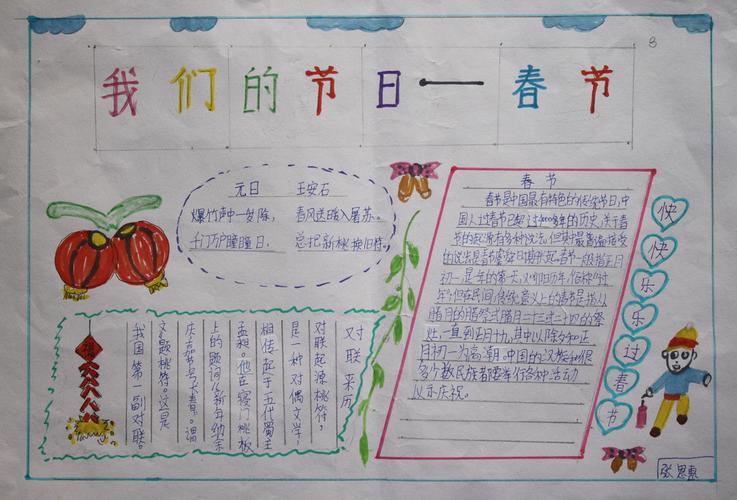 我们的节日——春节
8
元日 王安石
爆竹声中一岁除, 春风送暖入屠苏。
千门万户曈曈日, 总把新桃换旧符。
春节
春节是中国最有特色的传统节日,中
国人过春节已超过4000多年的历史,关于春
节的起源有多种说法,但其中最普遍接受
的说法是春节由虞舜时期兴起。春节一般指正月
初一,是年的第一天,又叫阴历年,俗称“过
年”。但在民间,传统意义上的春节是指从
腊月的腊祭或腊月二十三或二十四的祭
灶,一直到正月十九,其中以除夕和正
月初一为高潮。中国的汉族和很
多少数民族都要举行各种活动
以示庆祝。
快快乐乐过春节
对联来历
对联起源桃符,
是一种对偶文学,
相传起于五代蜀主
孟昶。他在寝门桃板
上的题词“新年纳余
庆,嘉节号长春”,谓
文“题桃符”。这是
我国第一副对联。
张思惠